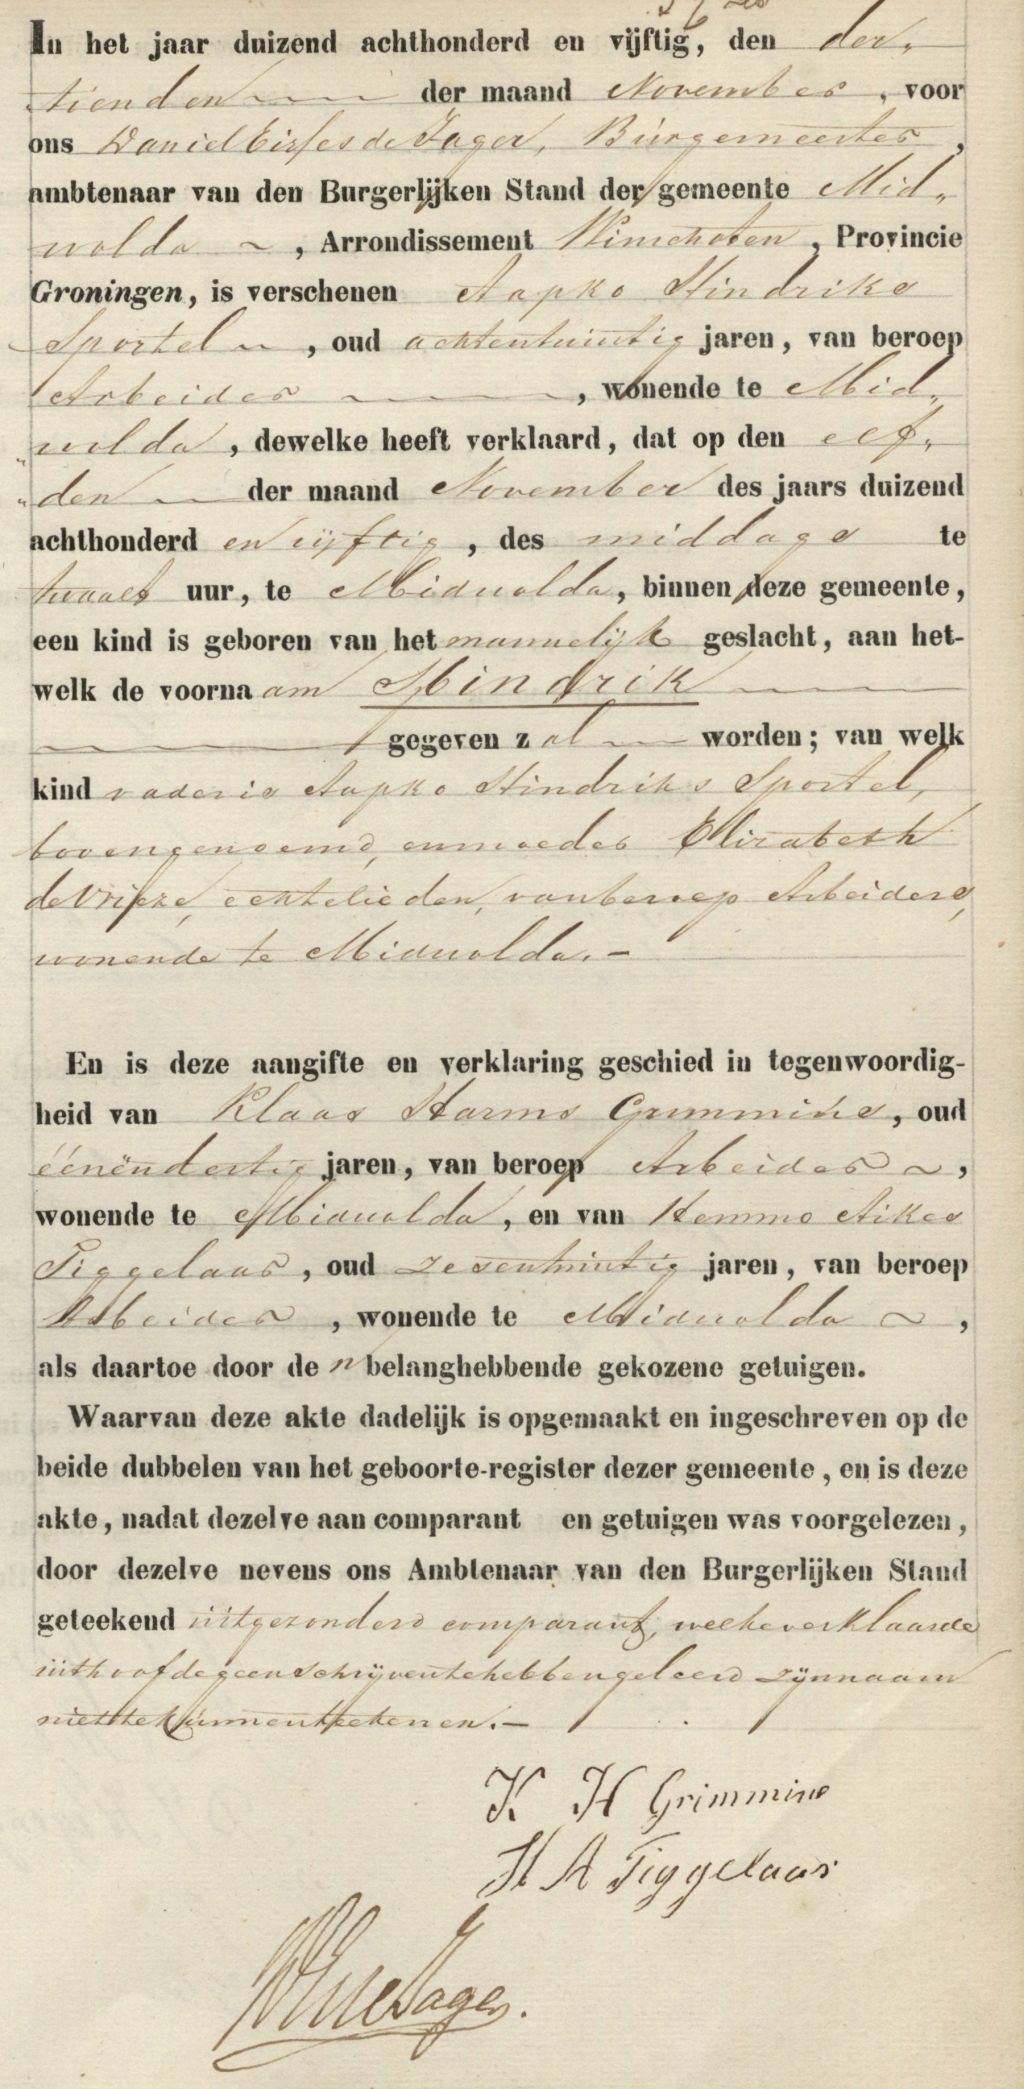 In het jaar duizend achthonderd en vijftig, den der„
tienden der maand November, voor
ons Daniel Eisses de Jager, Burgemeester,
ambtenaar van den Burgerlijken Stand der gemeente Mid„
wolda, Arrondissement Winschoten, Provincie
Groningen, is verschenen Aapko Hindriks
Sportel, oud achtentwintig jaren, van beroep
Arbeider, wonende te Mid„
„wolda, dewelke heeft verklaard, dat op den elf„
„den der maand November des jaars duizend
achthonderd en vijftig, des middags te
twaalf uur, te Midwolda, binnen deze gemeente,
een kind is geboren van het mannelijk geslacht, aan het-
welk de voornaam Hindrik
gegeven zal worden; van welk
kind vader is Aapko Hindriks Sportel,
bovengenoemd, en moeder Elizabeth
de Vrieze, echtelieden, van beroep Arbeiders,
wonende te Midwolda.—
En is deze aangifte en verklaring geschied in tegenwoordig-
heid van Klaas Harms Grimmine, oud
éénëndertig jaren, van beroep Arbeider,
wonende te Midwolda, en van Hemmo Aikes
Tiggelaar, oud zesentwintig jaren, van beroep
Arbeider, wonende te Midwolda,
als daartoe door den belanghebbende gekozene getuigen.
Waarvan deze akte dadelijk is opgemaakt en ingeschreven op de
beide dubbelen van het geboorte-register dezer gemeente, en is deze
akte, nadat dezelve aan comparant en getuigen was voorgelezen,
door dezelve nevens ons Ambtenaar van den Burgerlijken Stand
geteekend uitgezonderd comparant, welke verklaarde
uit hoofde geen schrijven te hebben geleerd zijn naam
niet te kunnen teekenen.—
K H Grimmine
H A Tiggelaar
DEdeJager.